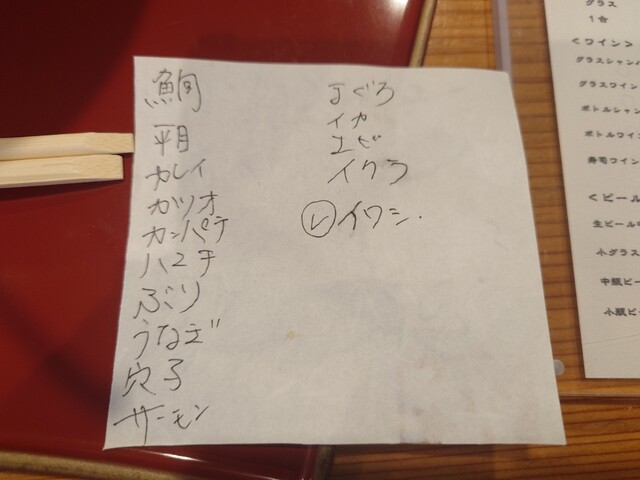 鯛
平目
カレイ
カツオ
カンパチ
ハマチ
ぶり
うなぎ
穴子
サーモン
まぐろ
イカ
エビ
イクラ
レ イワシ.
グラス
1合
<ワイン>
グラスシャンパ
グラスワイン
ボトルシャン
ボトルワイン
寿司ワイン
<ビール
生ビール中
小グラス
中瓶ビー
小瓶ビー